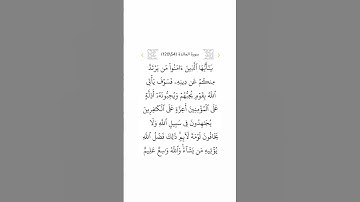 سورة المائدة (120,54)
يَـٰٓأَيُّهَا ٱلَّذِينَ ءَامَنُوا۟ مَن يَرْتَدَّ
مِنكُمْ عَن دِينِهِۦ فَسَوْفَ يَأْتِى
ٱللَّهُ بِقَوْمٍ يُحِبُّهُمْ وَيُحِبُّونَهُۥٓ أَذِلَّةٍ
عَلَى ٱلْمُؤْمِنِينَ أَعِزَّةٍ عَلَى ٱلْكَـٰفِرِينَ
يُجَـٰهِدُونَ فِى سَبِيلِ ٱللَّهِ وَلَا
يَخَافُونَ لَوْمَةَ لَآئِمٍ ۚ ذَٰلِكَ فَضْلُ ٱللَّهِ
يُؤْتِيهِ مَن يَشَآءُ ۚ وَٱللَّهُ وَٰسِعٌ عَلِيمٌ